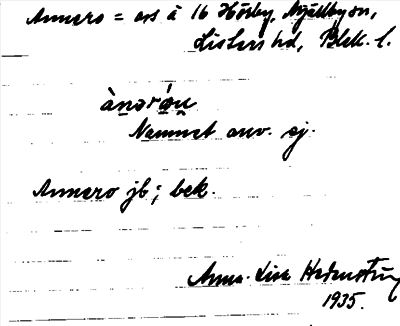 Annero = ers å 16 Hörby, Mjällbyson,
Listers hd, Blek. l.
ànǝrǻu̯
Namnet anv. ej.
Annero jb; bek.
Anna-Lisa
1935.